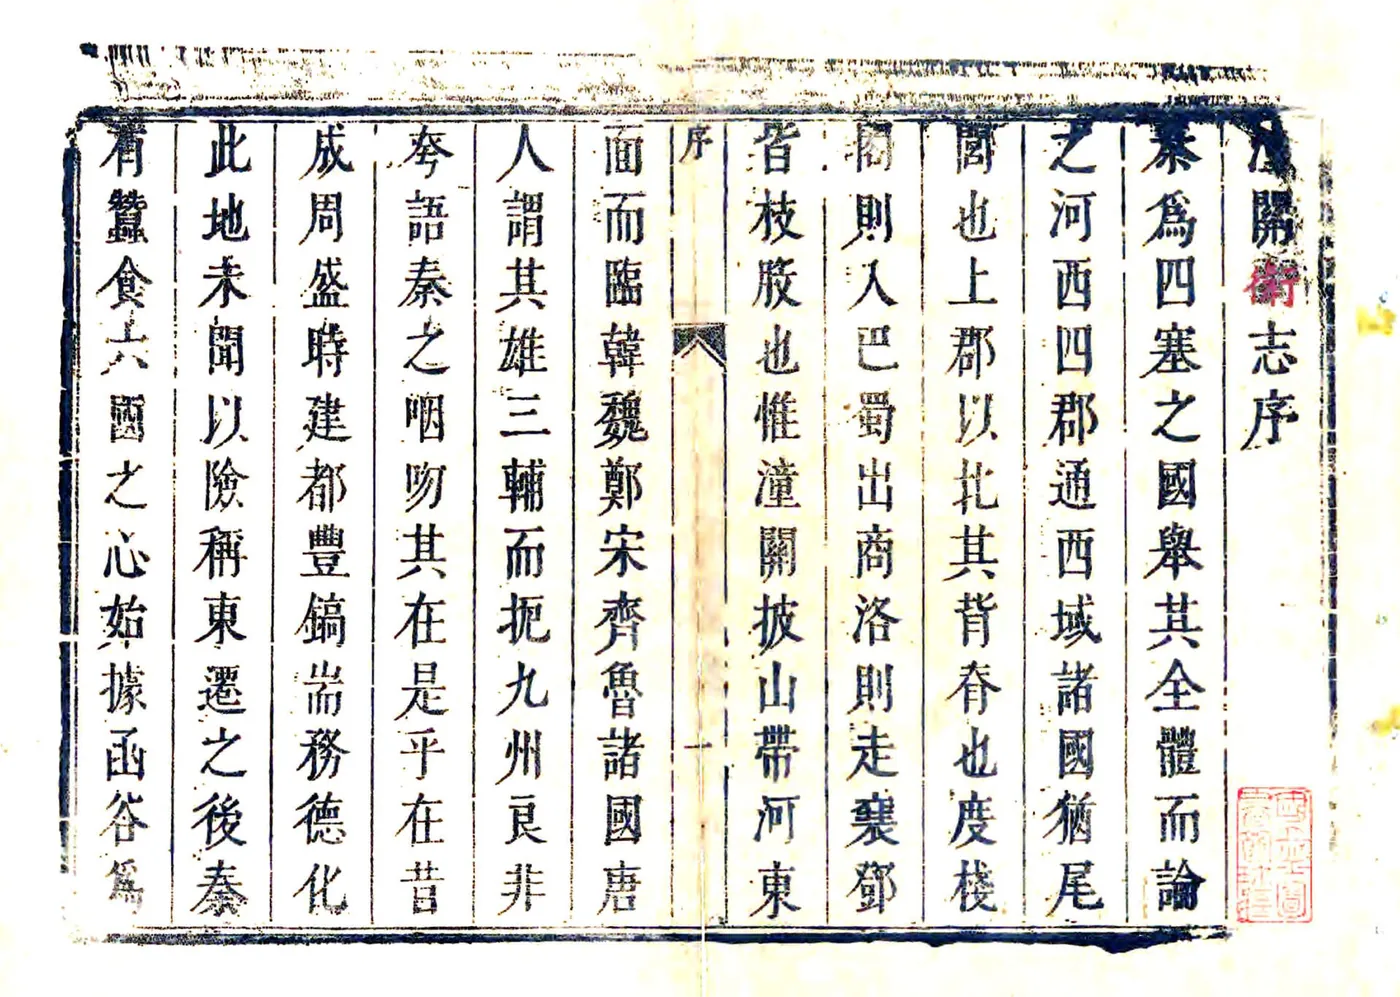 潼關衛志序
秦為四塞之國舉其全體而論
之河西四郡通西域諸國猶尾
閭也上郡以北其背脊也度棧
閣則入巴蜀出商洛則走襄鄧
皆枝股也惟潼關披山帶河東
序
一
面而臨韓魏鄭宋齊魯諸國唐
人謂其雄三輔而扼九州良非
夸語秦之咽吻其在是乎在昔
成周盛時建都豐鎬耑務德化
此地未聞以險稱東遷之後秦
有蠶食六國之心始據函谷為